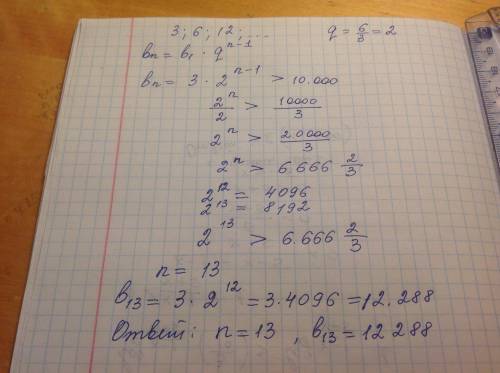 3; 6; 12; ... q = 6/3 = 2
bₙ = b₁ · qⁿ⁻¹
bₙ = 3 · 2ⁿ⁻¹ > 10.000
2ⁿ/2 > 10000/3
2ⁿ > 20000/3
2ⁿ > 6.666 2/3
2¹² = 4096
2¹³ = 8192
2¹³ > 6.666 2/3
n = 13
b₁₃ = 3 · 2¹² = 3.4096 = 12.288
Ответ: n = 13, b₁₃ = 12 288